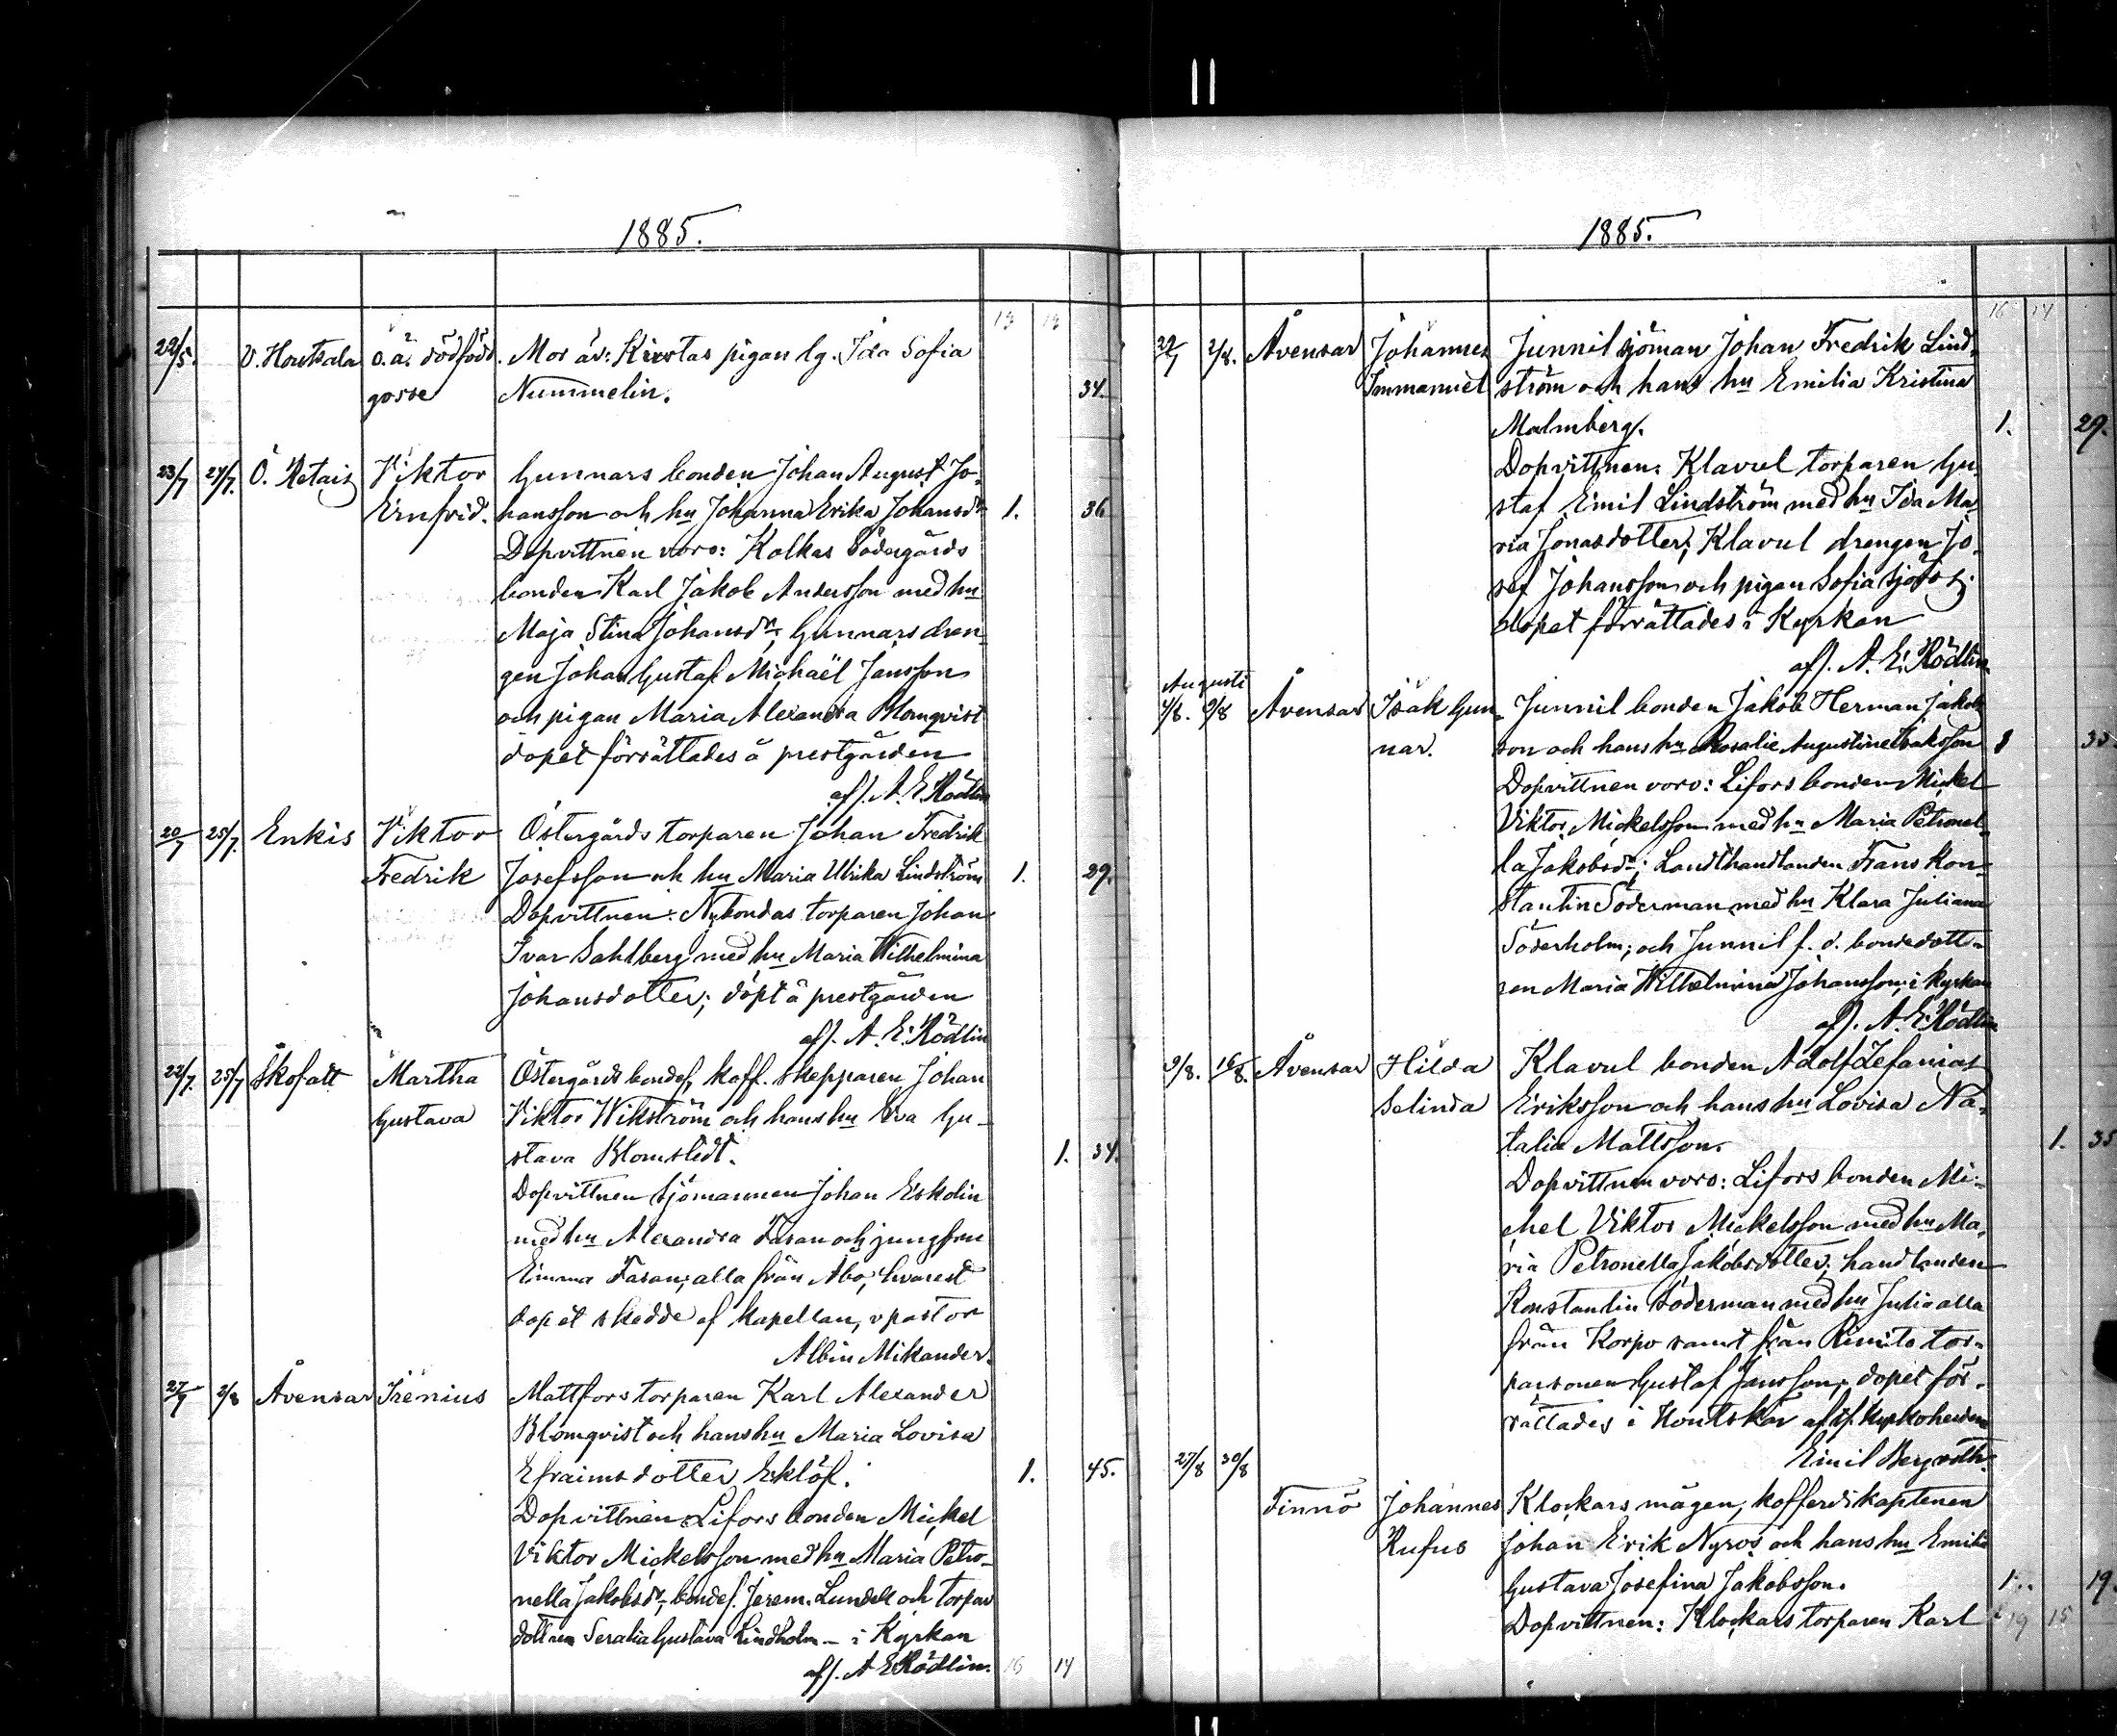 1885.
13 13
22/5. V. Houtskla o.ä. dödfödd Mor är: Kivstas pigan lg. Ida Sofia
gosse Nummelin. 34.
23/7 24/7. Ö. Retais Viktor Gunnars bonden Johan August Jo-
Ernfrid. hansson och hu Johanna Erika Johansdr 1. 36
Dopvittnen voro: Kolkas Södergårds
bonden Karl Jakob Andersson med hu
Maja Stina Johansdr; Gunnars dren-
gen Johan Gustaf Michaël Jansson
och pigan Maria Alexandra Blomqvist
dopet förrättades å prestgården
af/. A. E. Rödlin
20/7 25/7. Enkis Viktor Östergårds torparen Johan Fredrik
Fredrik Josefsson och hu Maria Ulrika Lindström 1. 29.
Dopvittnen: Nybondas torparen Johan
Ivar Sahlberg med hu Maria Wilhelmina
Johansdotter; döpt å prestgården
af/. A. E. Rödlin
22/7. 25/7 Skofatt Martha Östergårds bondes, koff. skepparen Johan
Gustava Viktor Wikström och hans hu Eva Gu-
stava Blomstedt. 1. 34.
Dopvittnen Sjömannen Johan Eskolin
med hu Alexandra Fasan och jungfrun
Emma Fasan; alla från Åbo, hvarest
dopet skedde af kapellan, v pastor
Albin Mikander.
27/7 2/8 Åvensar Irénius Mattfors torparen Karl Alexander
Blomqvist och hans hu Maria Lovisa
Efraimsdotter Eklöf. 1. 45.
Dopvittnen Lifors bonden Mickel
Viktor Mickelsson med hu Maria Petro-
nella Jakobsdr; bondes. Jerem. Lundell och torpar
dottren Seralia Gustava Lindholm – i Kyrkan
af/. A E Rödlin. 16 14
1885.
16 14
22/7 2/8. Åvensar Johannes Junnil sjöman Johan Fredrik Lind-
Immanuel ström och hans hu Emilia Kristina
Malmberg. 1. 29.
Dopvittnen: Klavul torparen Gu-
staf Emil Lindström med hu Ida Ma-
ria Jonasdotter; Klavul drengen Jo-
sef Johansson och pigan Sofia
dopet förrättades i Kyrkan
af/. A. E. Rödlin
Augusti
4/8. 9/8 Åvensar Isak Gun- Junnil bonden Jakob Herman Jakobs
nar. son och hans hu Rosalie Augustine Isaksson 1 33
Dopvittnen voro: Lifors bonden Mickel
Viktor Mickelsson med hu Maria Petronel-
la Jakobsdr; Landthandlanden Frans Kon-
stantin Söderman med hu Klara Juliana
Söderholm; och Junnil f. d. bondedott-
ren Maria Wilhelmina Johansson; i kyrkan
af/. A. E. Rödlin
9/8. 16/8. Åvensar Hilda Klavul bonden Adolf Zefanias
Selinda Eriksson och hans hu Lovisa Na-
talia Mattsson. 1. 35
Dopvittnen voro: Lifors bonden Mi-
chel Viktor Mickelsson med hu Ma-
ria Petronella Jakobsdotter; handlanden
Konstantin Söderman med hu Julia alla
från Korpo samt från Rimito tor-
parsonen Gustaf Jansson; dopet för-
rättades i Houtskär af tf. kyrkoherden
Emil Bergroth.
27/8 30/8
Finnö Johannes Klockars mågen, kofferdikaptenen
Rufus Johan Erik Nyroos och hans hu Emilia
Gustava Josefina Jakobsson. 1. 19.
Dopvittnen: Klockars torparen Karl 19 15